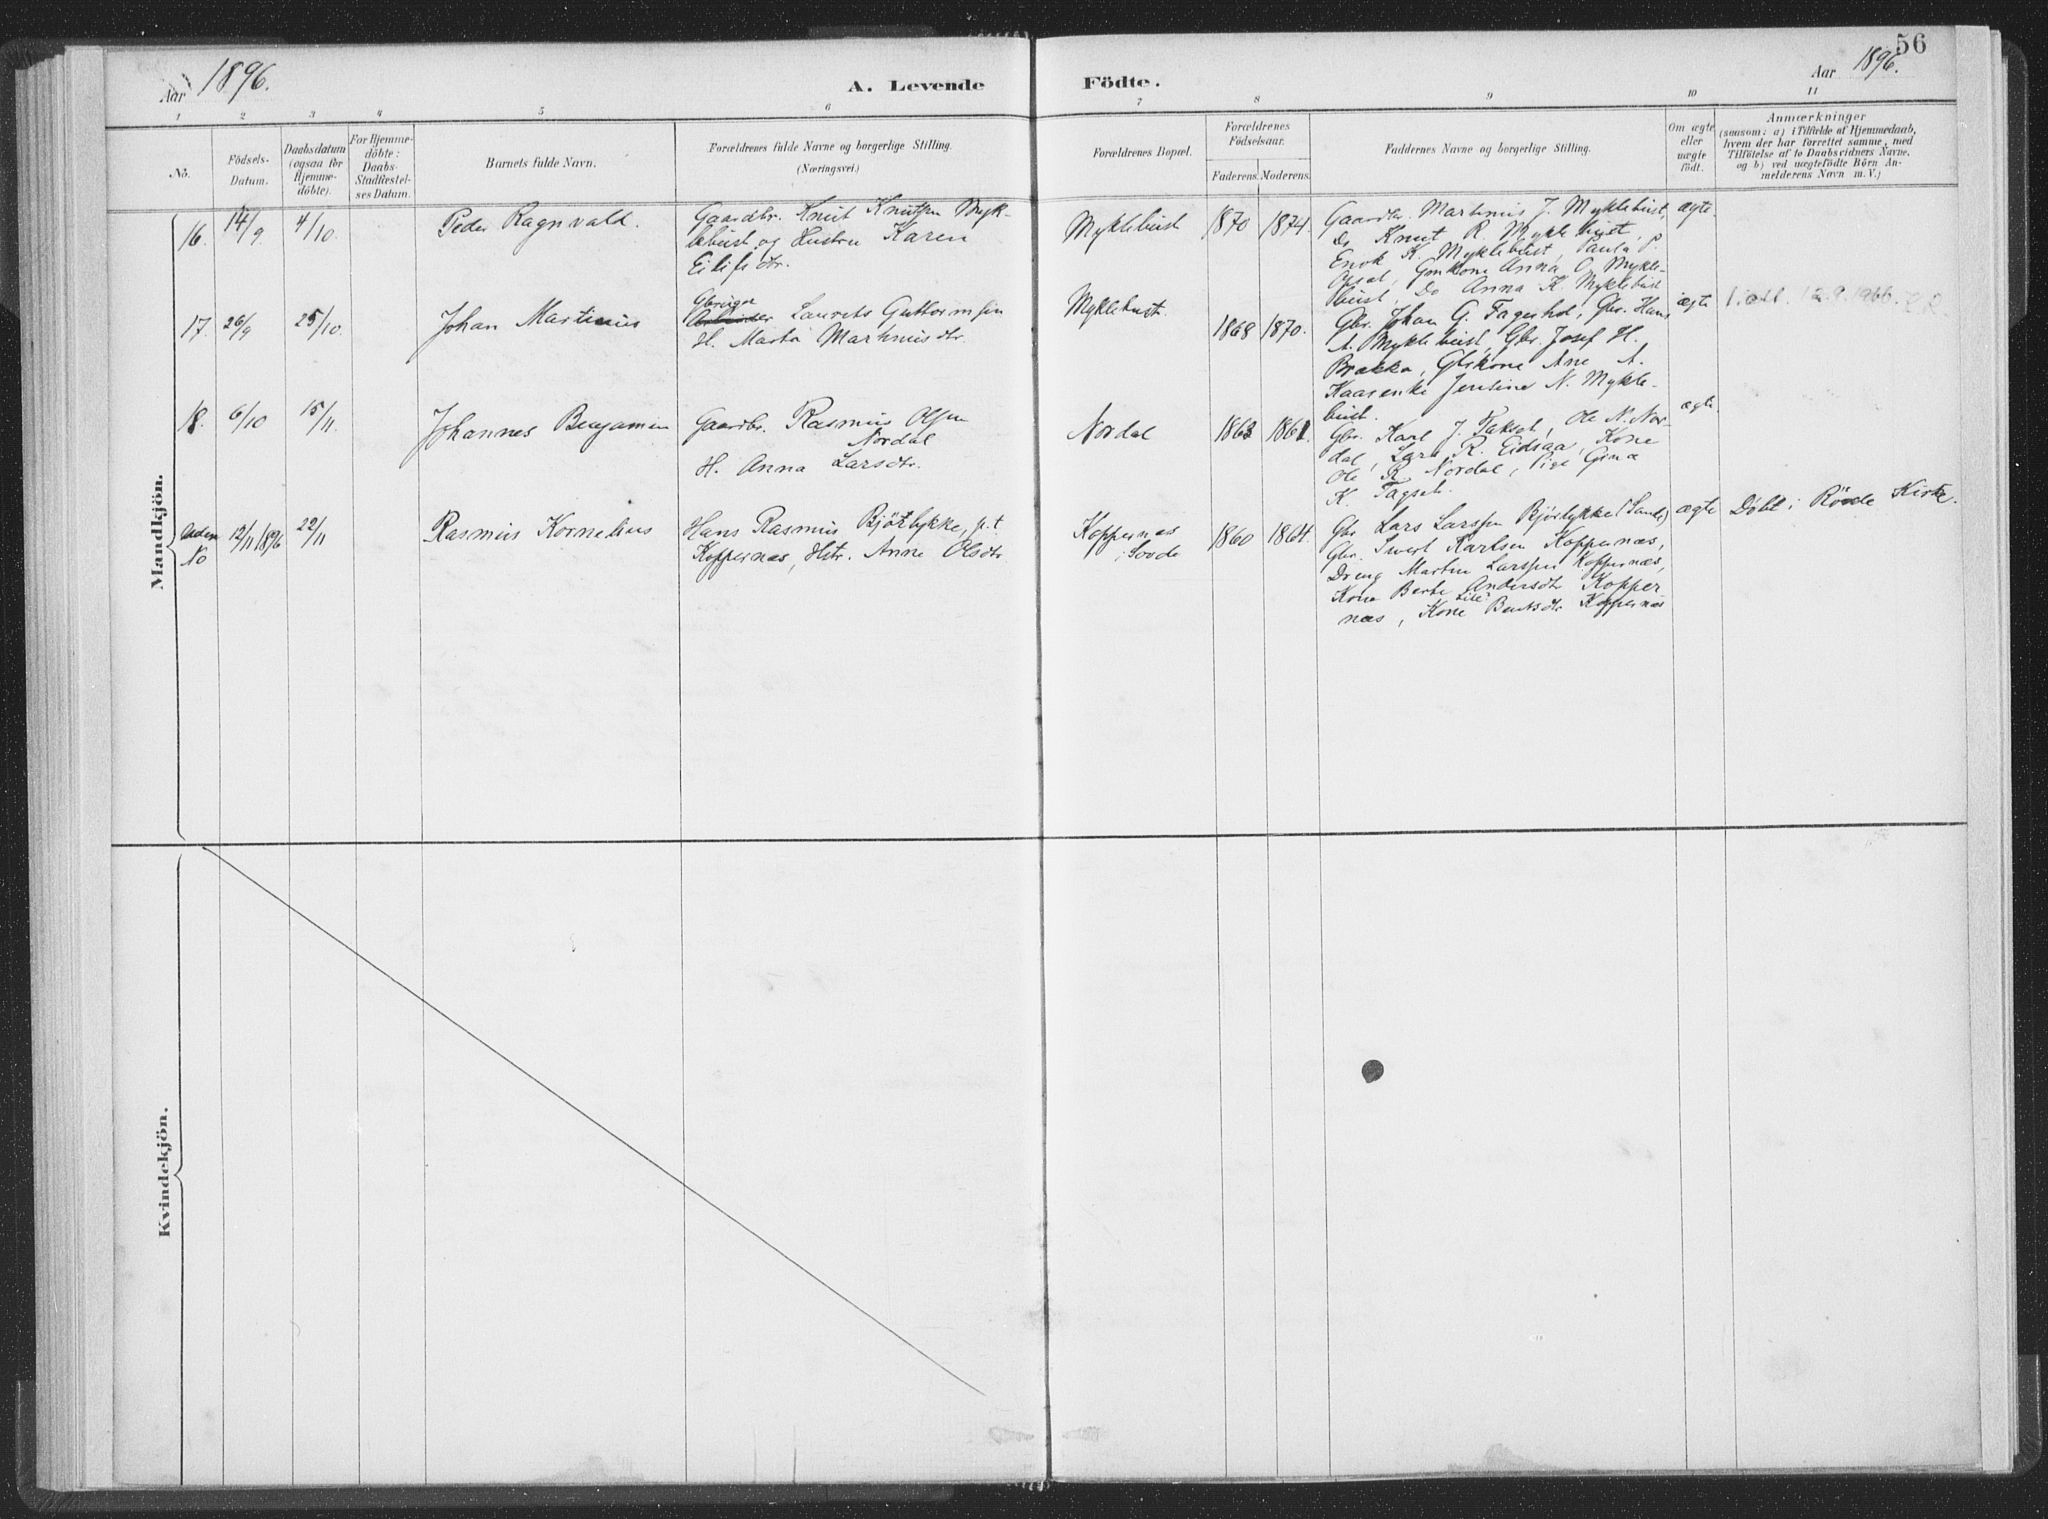 56
Aar 1896.
A. Levende Födte.
Aar 1896.
1 2 3 4 5 6 7 8 9 10 11
No.
Födsels-
Datum.
Daabsdatum
(ogsaa for
Hjemme-
döbte).
For Hjemme-
döbte:
Daabs-
Stadfæstel-
ses Datum.
Barnets fulde Navn.
Forældrenes fulde Navne og borgerlige Stilling.
(Næringsvei.)
Forældrenes Bopæl.
Forældrenes
Födselsaar.
Faderens. Moderens.
Faddernes Navne og borgerlige Stilling.
Om ægte
eller
uægte
födt.
Anmærkninger
(saasom: a) i Tilfælde af Hjemmedaab,
hvem der har forrettet samme, med
Tilföielse af to Daabsvidners Navne,
og b) ved uægtefödte Börn An-
melderens Navn m. V.)
Mandkjön.
16. 14/9 4/10. Peder Ragnvald.
Gaardbr. Knut Knutsen Myk-
lebust og Hustru Karen
Eilifsdtr.
Myklebust 1870 1874.
Gaardbr. Martinus J. Myklebust,
Do Knut R. Myklebust,
Enok K. Myklebust, Paula P
Orsal, Gmkone Anna O. Mykle-
bust, Do Anna K. Myklebust
ægte.
17. 26/9 25/10. Johan Martinus
Laurits Guttormsen
H. Marta Martinusdtr.
Myklebust. 1868 1870.
Gbr. Johan G. Fagerhol, Gbr. Hans
A. Myklebust, Gbr. Josef H.
Brekka, Gbskone Ane A.
Kaasen Jensine N. Mykle-
bust.
ægte 12.9.1966.
18. 6/10 15/11. Johannes Benjamin
Gaardbr. Rasmus Olsen
Nordal
H. Anna Larsdtr.
Nordal 1863 1861.
Gbr. Karl J. Takset, Ole N. Nor-
dal, Lars R. Eidsaa, Kone
Ole R. Nordal, Pige Gina
K. Tagset.
ægte
Uden
No 12/11 1896 22/11 Rasmus Kornelius
Hans Rasmus Bjørlykke, p.t
Koppernæs, Hstr. Anne Olsdtr.
Koppernæs
Sovde 1860 1864.
Gbr Lars Larssen Bjørlykke (Sande)
Gbr. Sivert Karlsen Koppernæs,
Dreng Martin Larssen Koppernæs,
Kone Berte Andersdtr Kopper
næs, Kone Bentsdtr Koppernæs
ægte Døbt i Røvde Kirke.
Kvindekjön.